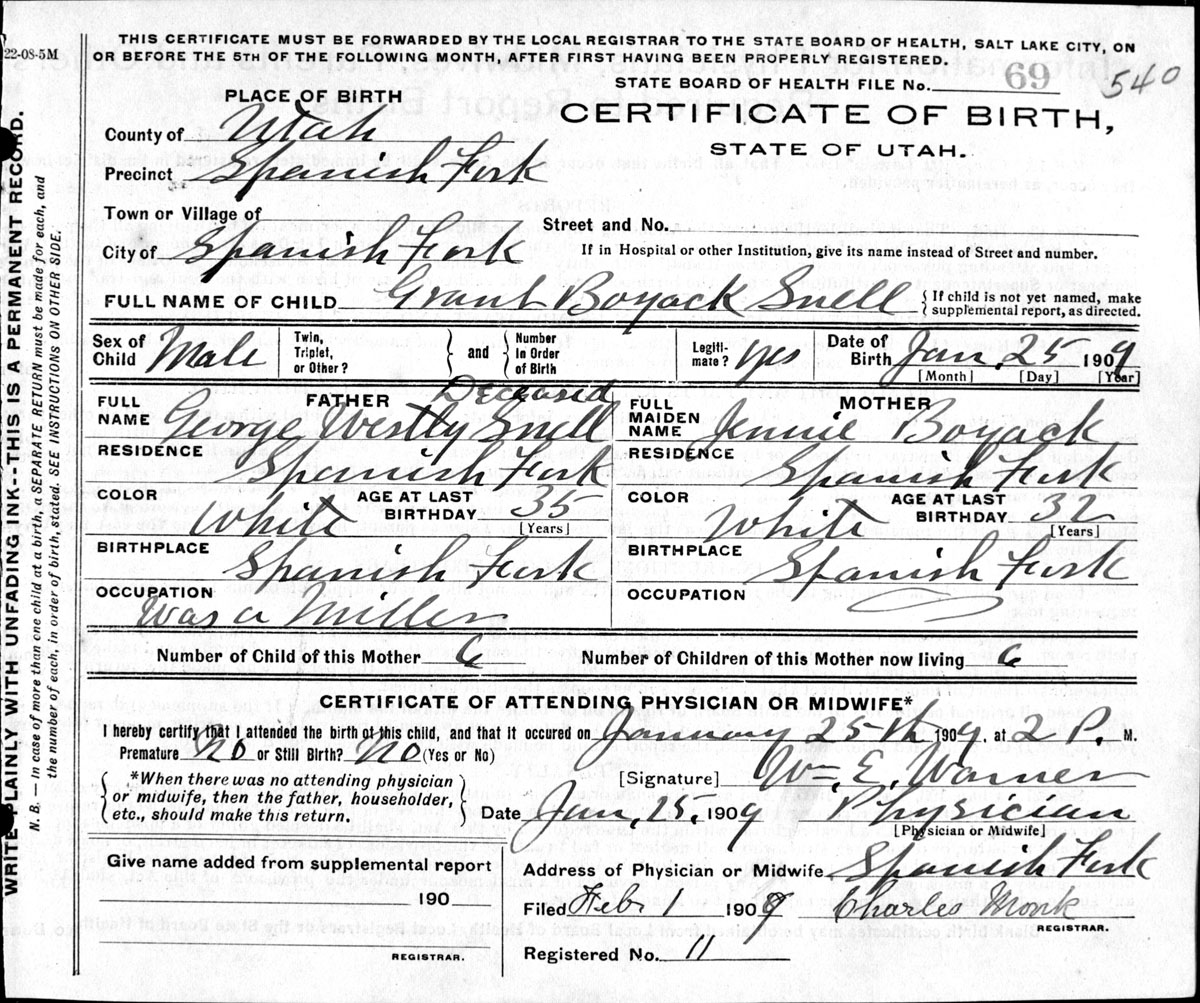 22-08-5M
THIS CERTIFICATE MUST BE FORWARDED BY THE LOCAL REGISTRAR TO THE STATE BOARD OF HEALTH, SALT LAKE CITY, ON
OR BEFORE THE 5TH OF THE FOLLOWING MONTH, AFTER FIRST HAVING BEEN PROPERLY REGISTERED.
STATE BOARD OF HEALTH FILE No. 69 540
PLACE OF BIRTH
CERTIFICATE OF BIRTH,
STATE OF UTAH.
County of Utah
Precinct Spanish Fork
Town or Village of
Street and No.
City of Spanish Fork
If in Hospital or other Institution, give its name instead of Street and number.
FULL NAME OF CHILD Grant Boyack Snell { If child is not yet named, make supplemental report, as directed.
Sex of Child Male Twin, Triplet, or Other? } and { Number in Order of Birth Legiti- mate? yes Date of Birth Jan. 25 1909
[Month] [Day] [Year]
FATHER Deceased
MOTHER
FULL NAME George Westly Snell
FULL MAIDEN NAME Jennie Boyack
RESIDENCE Spanish Fork
RESIDENCE Spanish Fork
COLOR White AGE AT LAST BIRTHDAY 35 [Years]
COLOR White AGE AT LAST BIRTHDAY 32 [Years]
BIRTHPLACE Spanish Fork
BIRTHPLACE Spanish Fork
OCCUPATION Was a Miller
OCCUPATION
Number of Child of this Mother 6 Number of Children of this Mother now living 6
CERTIFICATE OF ATTENDING PHYSICIAN OR MIDWIFE*
I hereby certify that I attended the birth of this child, and that it occured on January 25th 1909. at 2 P. M.
Premature No or Still Birth? No (Yes or No)
*When there was no attending physician
or midwife, then the father, householder,
etc., should make this return.
[Signature] Wm. E. Warner
Date Jan. 25. 1909 Physician
[Physician or Midwife]
Give name added from supplemental report
190
REGISTRAR.
Address of Physician or Midwife Spanish Fork
Filed Feb 1 1909 Charles Monk
REGISTRAR.
Registered No. 11
WRITE PLAINLY WITH UNFADING INK--THIS IS A PERMANENT RECORD.
N. B. — In case of more than one child at a birth, a SEPARATE RETURN must be made for each, and
the number of each, in order of birth, stated. SEE INSTRUCTIONS ON OTHER SIDE.